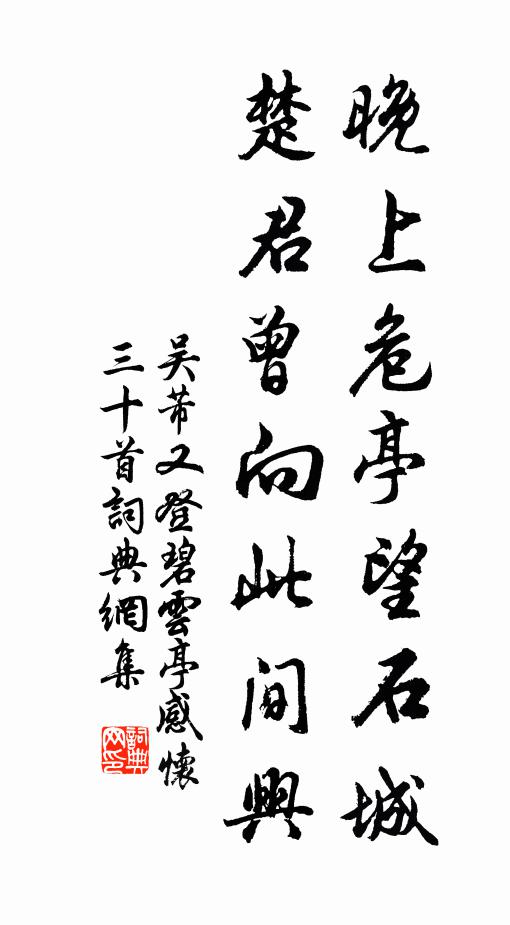 晚上危亭望石城
楚君曾向此间興
吴芾又登碧雲亭感懷
三十首詞典網集
詞典网印